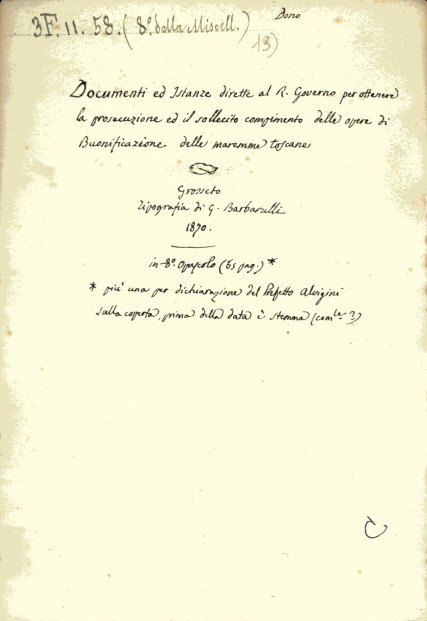 Dono
3F. 11. 58. (8º. della Miscell.)
13)
Documenti ed Istanze dirette al R. Governo per ottenere
la prosecuzione ed il sollecito compimento delle opere di
Buonificazione delle maremme toscane
Grosseto
Tipografia di G. Barbarulli
1870.
in-8º. Opuscolo (65 pag.) *
* più una per dichiarazione del Prefetto Alvigini
sulla coperta, prima della data è stemma (com.le ?)
C